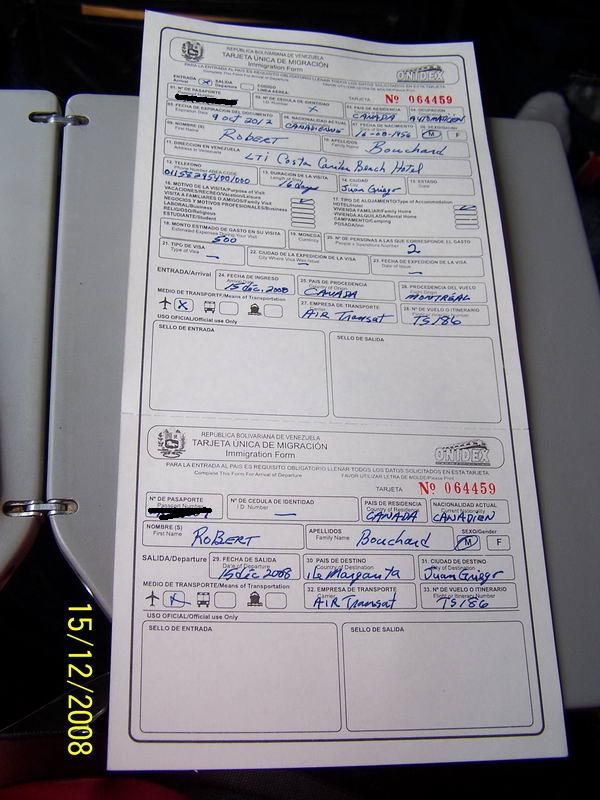 REPÚBLICA BOLIVARIANA DE VENEZUELA
TARJETA ÚNICA DE MIGRACIÓN
Immigration Form
ONIDEX
PARA LA ENTRADA AL PAIS ES REQUISITO OBLIGATORIO LLENAR TODOS LOS DATOS SOLICITADOS EN ESTA TARJETA
ENTRADA Arrival X SALIDA Departure CODIGO LINEA AEREA: TARJETA Nº 064459
01. Nº DE PASAPORTE 02. Nº DE CEDULA DE IDENTIDAD 03. PAIS DE RESIDENCIA CANADA 04. OCUPACION
05. FECHA DE EXPIRACION DEL DOCUMENTO 9 oct 2012 06. NACIONALIDAD ACTUAL 07. FECHA DE NACIMIENTO 16-08-1956 M F
09. NOMBRE (S) First Name ROBERT 10. APELLIDOS Family Name Bouchard
11. DIRECCION EN VENEZUELA LTI Costa Caribe Beach Hotel
12. TELEFONO 13. DURACION DE LA VISITA 14. CIUDAD Juan Griego 15. ESTADO
16. MOTIVO DE LA VISITA/Purpose of Visit 17. TIPO DE ALOJAMIENTO/Type of Accommodation
VACACIONES/RECREO/Vacation/Leisure HOTEL/Hotel
VISITA A FAMILIARES O AMIGOS/Family Visit VIVIENDA FAMILIAR/Family Home
NEGOCIOS Y MOTIVOS PROFESIONALES/Business VIVIENDA ALQUILADA/Rental Home
LABORAL/Business CAMPAMENTO/Camping
RELIGIOSO/Religious POSADA/Inn
ESTUDIANTE/Student
18. MONTO ESTIMADO DE GASTO EN SU VISITA 500 19. MONEDA Currency 20. Nº DE PERSONAS A LAS QUE CORRESPONDE EL GASTO 2
21. TIPO DE VISA Type of Visa 22. CIUDAD DE LA EXPEDICION DE LA VISA 23. FECHA DE EXPEDICION DE LA VISA Date of Issue
ENTRADA/Arrival 24. FECHA DE INGRESO 15 dec. 2008 25. PAIS DE PROCEDENCIA CANADA 26. PROCEDENCIA DEL VUELO MONTRÉAL
MEDIO DE TRANSPORTE/Means of Transportation X 27. EMPRESA DE TRANSPORTE AIR Transat 28. Nº DE VUELO O ITINERARIO TS186
USO OFICIAL/Official use Only
SELLO DE ENTRADA SELLO DE SALIDA
REPÚBLICA BOLIVARIANA DE VENEZUELA
TARJETA ÚNICA DE MIGRACIÓN
Immigration Form
ONIDEX
PARA LA ENTRADA AL PAIS ES REQUISITO OBLIGATORIO LLENAR TODOS LOS DATOS SOLICITADOS EN ESTA TARJETA
Complete This Form For Arrival of Departure FAVOR UTILIZAR LETRA DE MOLDE/Please Print
TARJETA Nº 064459
Nº DE PASAPORTE Passport Number Nº DE CEDULA DE IDENTIDAD I.D. Number PAIS DE RESIDENCIA Country of Residence CANADA NACIONALIDAD ACTUAL CANADIEN
NOMBRE (S) First Name ROBERT APELLIDOS Family Name Bouchard SEXO/Gender M F
SALIDA/Departure 29. FECHA DE SALIDA 15 dic 2008 30. PAIS DE DESTINO Ile Margarita 31. CIUDAD DE DESTINO Juan Griego
MEDIO DE TRANSPORTE/Means of Transportation X 32. EMPRESA DE TRANSPORTE AIR Transat 33. Nº DE VUELO O ITINERARIO TS186
USO OFICIAL/Official use Only
SELLO DE ENTRADA SELLO DE SALIDA
15/12/2008